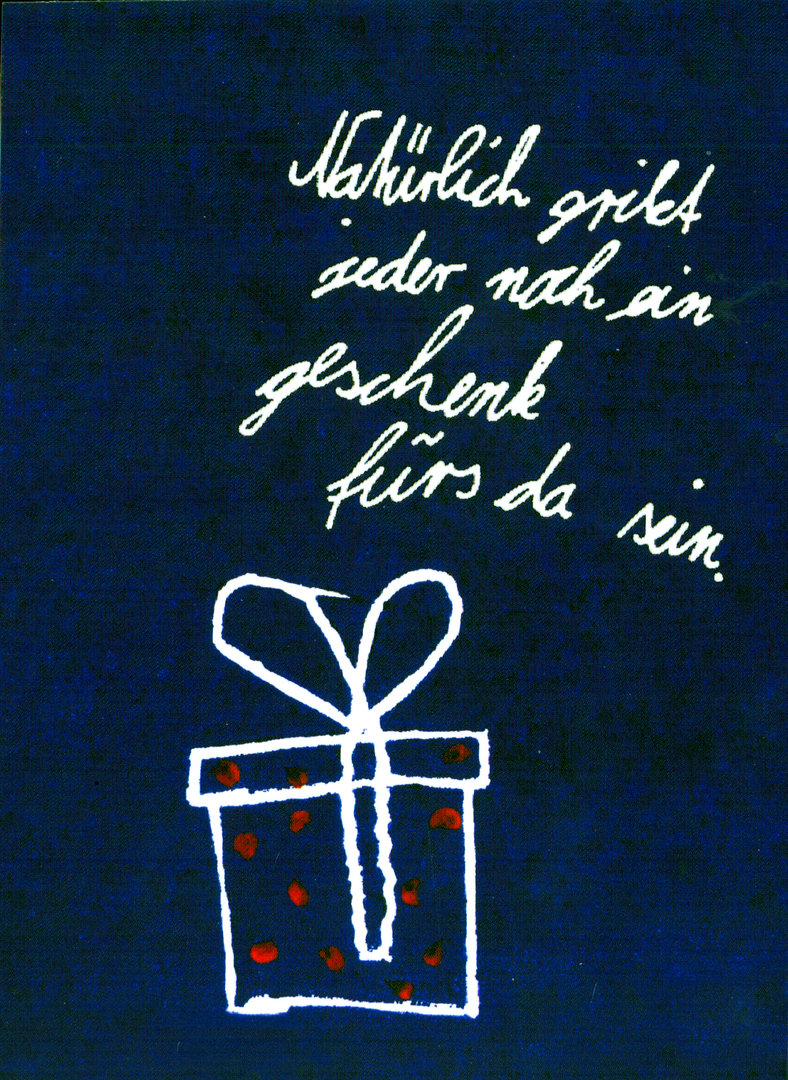 Natürlich gribt
jeder noch ein
geschenk
fürs da sein.